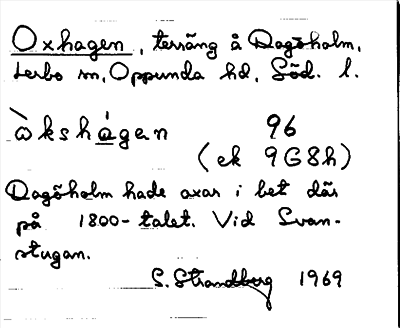 Oxhagen, terräng å Dagöholm,
Lerbo sn, Oppunda hd, Söd. l.
òkshá̱gen 96
(ek 9G8h)
Dagöholm hade oxar i bet där
på 1800-talet. Vid Svan-
stugan.
S. Strandberg 1969